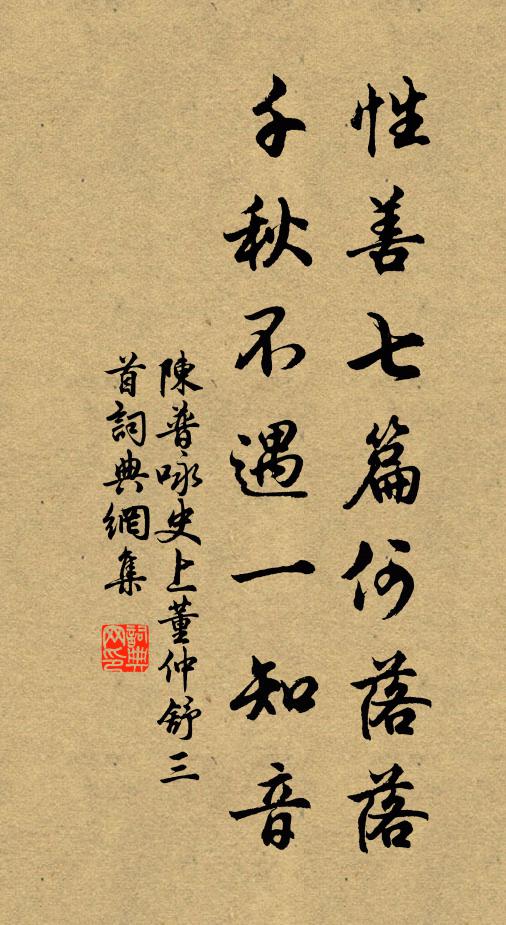 性善七篇何落落
千秋不遇一知音
陳普咏史上董仲舒三
首詞典網集
詞典网印